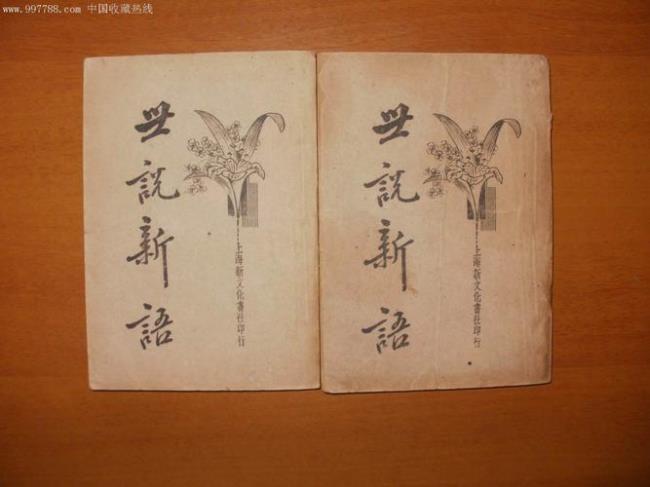 www.997788.com 中国收藏热线
世說新語
上海新文化書社印行
世說新語
上海新文化書社印行